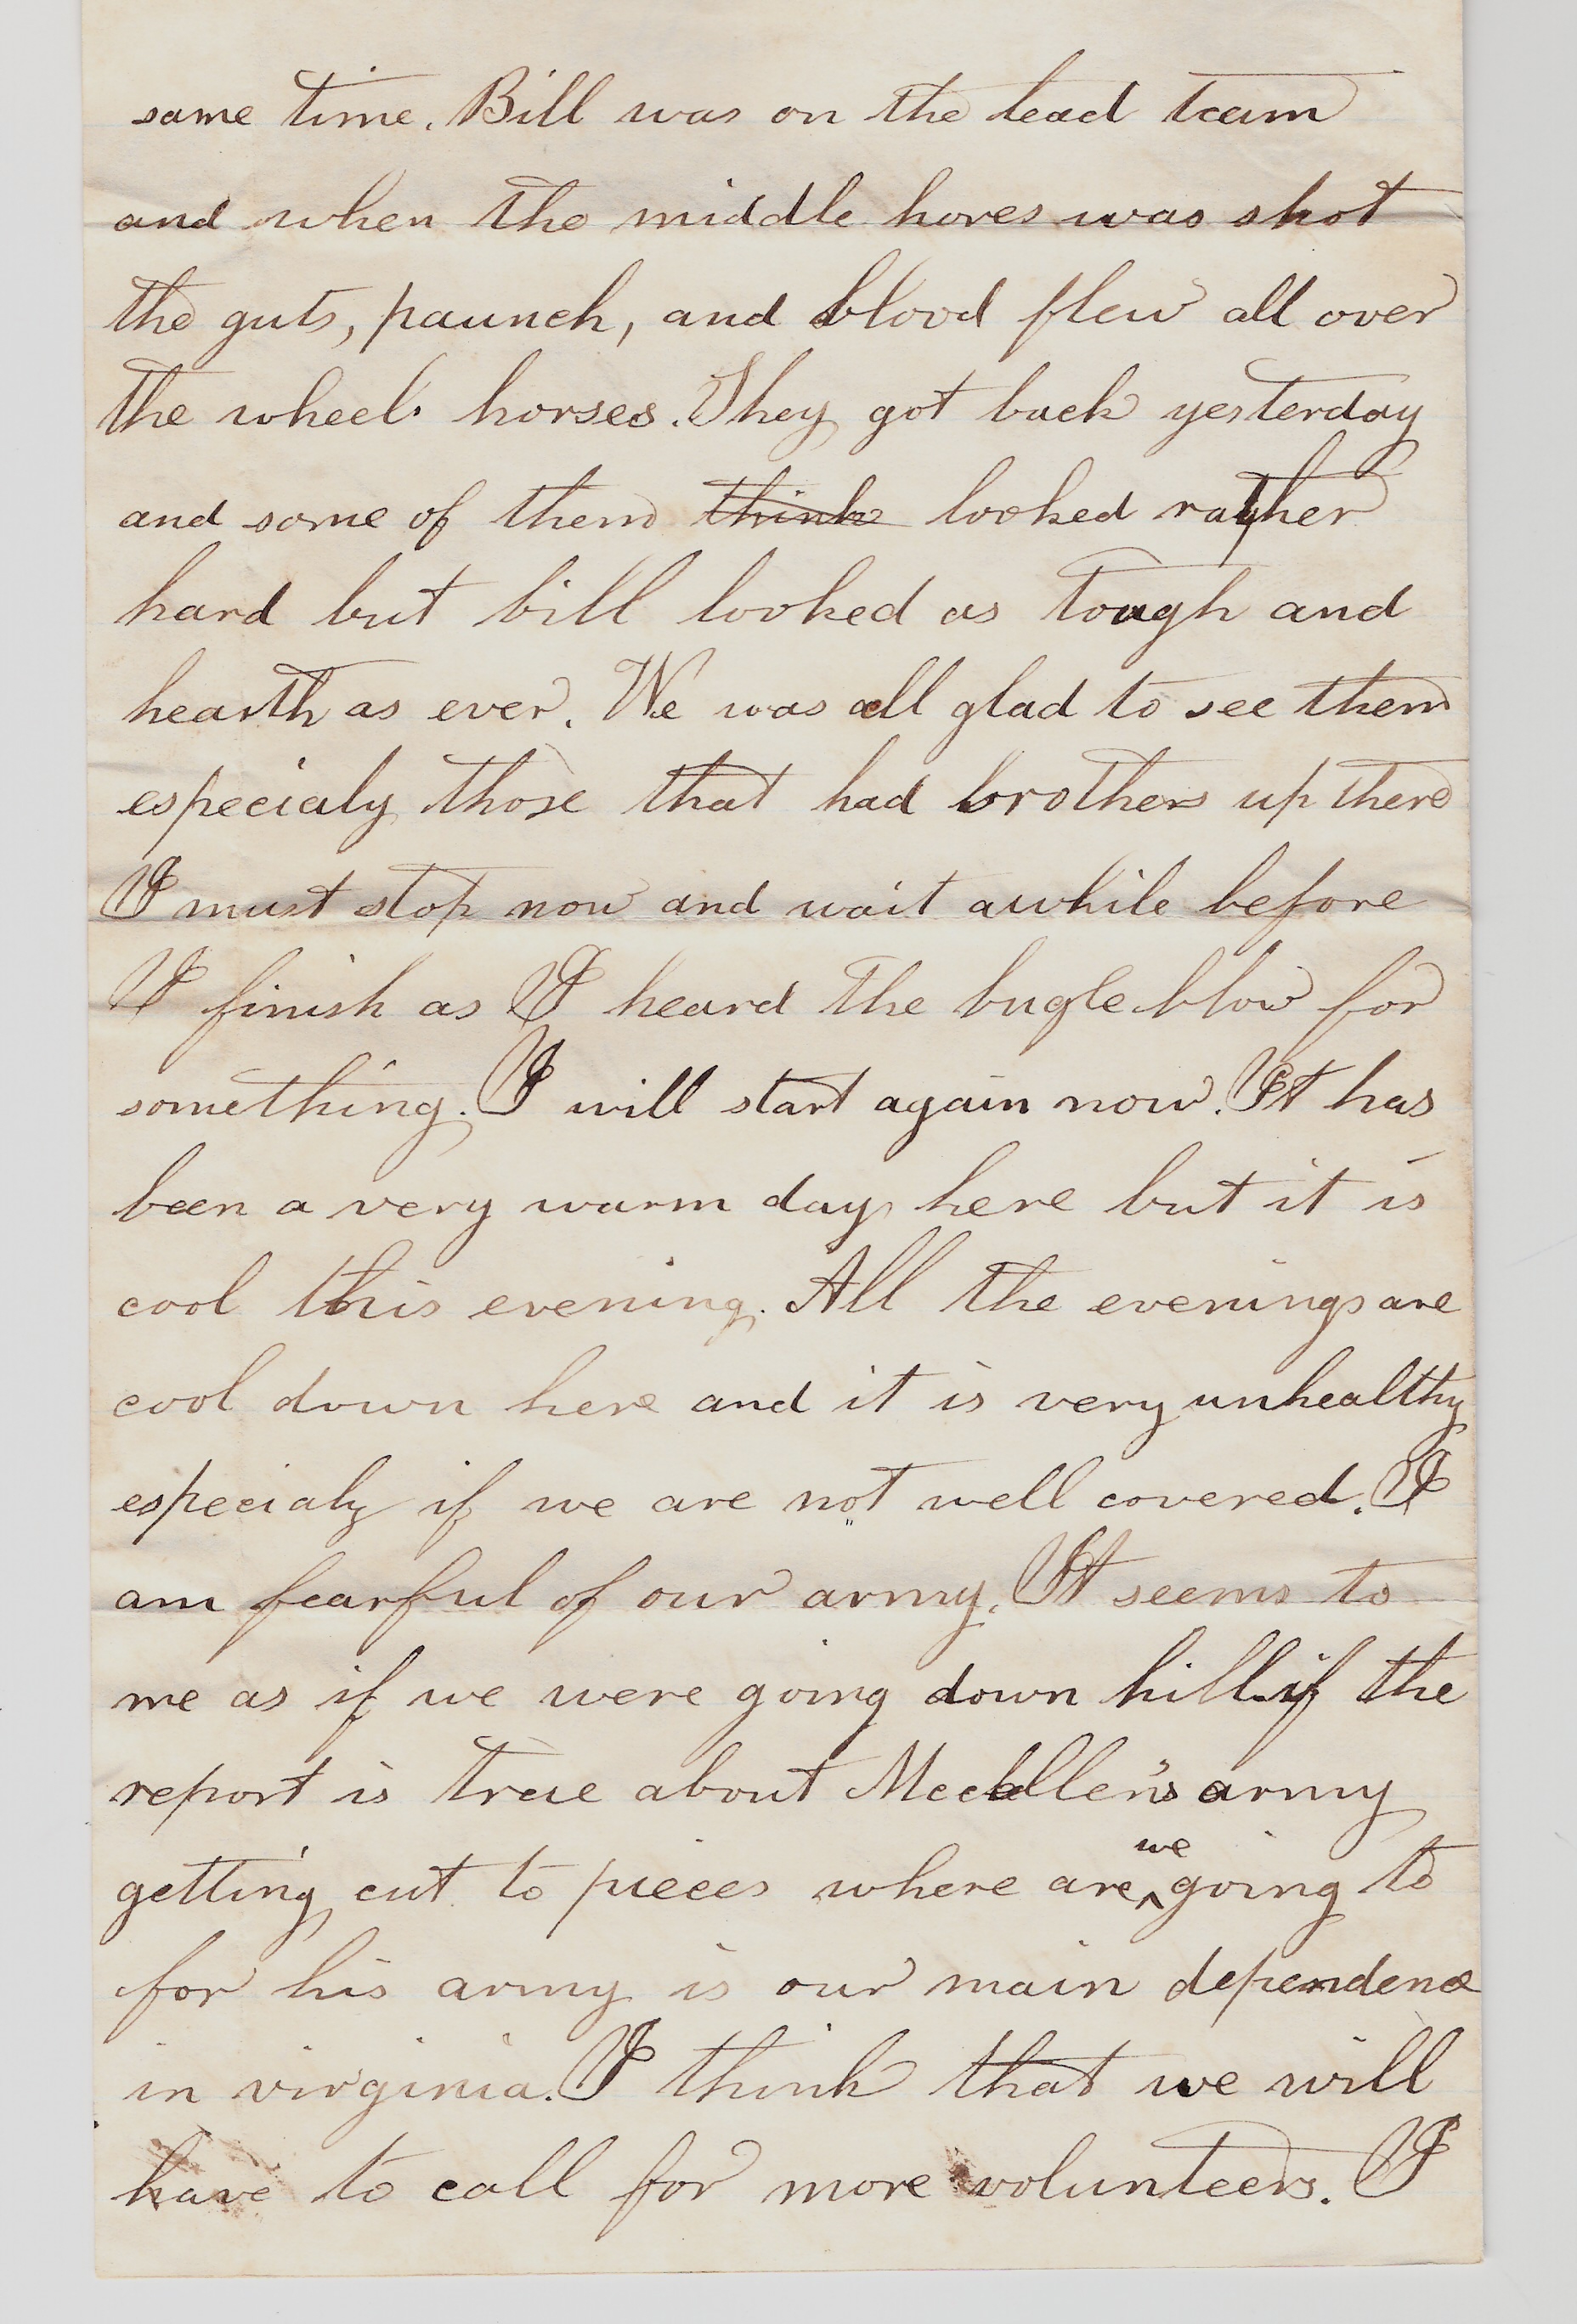 same time. Bill was on the lead team
and when the middle hores was shot
the guts, paunch, and blood flew all over
the wheel horses. They got back yesterday
and some of them ~~think~~ looked rather
hard but bill looked as tough and
hearth as ever. We was all glad to see them
especialy those that had brothers up there
I must stop now and wait awhile before
I finish as I heard the bugle blow for
something. I will start again now. It has
been a very warm day here but it is
cool this evening. All the evenings are
cool down here and it is very unhealthy
especialy if we are not well covered. I
am fearful of our army. It seems to
me as if we were going down hill if the
report is true about Mcclellen's army
getting cut to pieces where are we going to
for his army is our main dependence
in virginia. I think that we will
have to call for more volunteers. I